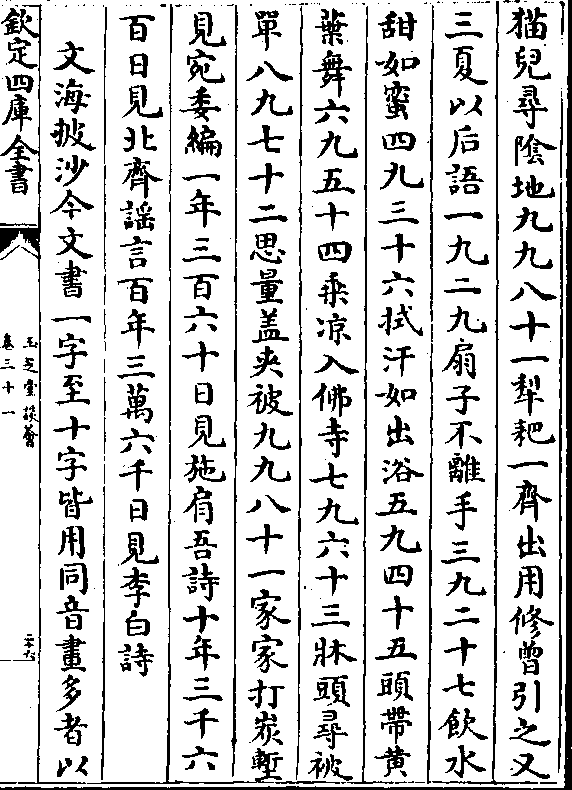 猫兒尋陰地九九八十一犁耙一齊出用修曾引之又
三夏以后語一九二九扇子不離手三九二十七飲水
甜如蜜四九三十六拭汗如出浴五九四十五頭帶黄
葉舞六九五十四乘凉入佛寺七九六十三牀頭尋被
單八九七十二思量盖夾被九九八十一家家打炭墼
見宛委編一年三百六十日見施肩吾詩十年三千六
百日見北齊謡言百年三萬六千日見李白詩
文海披沙今文書一字至十字皆用同音畫多者以
欽定四庫全書
玉芝堂談薈
卷三十一
二十六